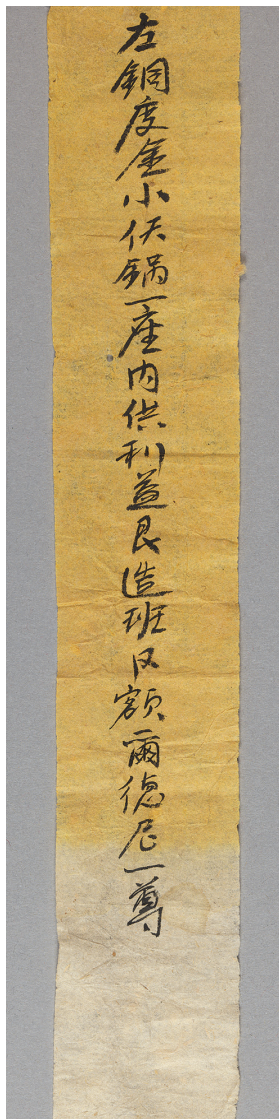 左銅度金小伏鍋一座内供利益艮造班臣額爾德尼一尊